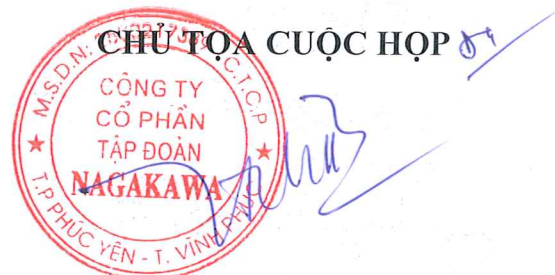 CHỦ TỌA CUỘC HỌP
CÔNG TY
CỔ PHẦN
TẬP ĐOÀN
NAGAKAWA
T.P PHÚC YÊN - T. VĨNH PHÚC